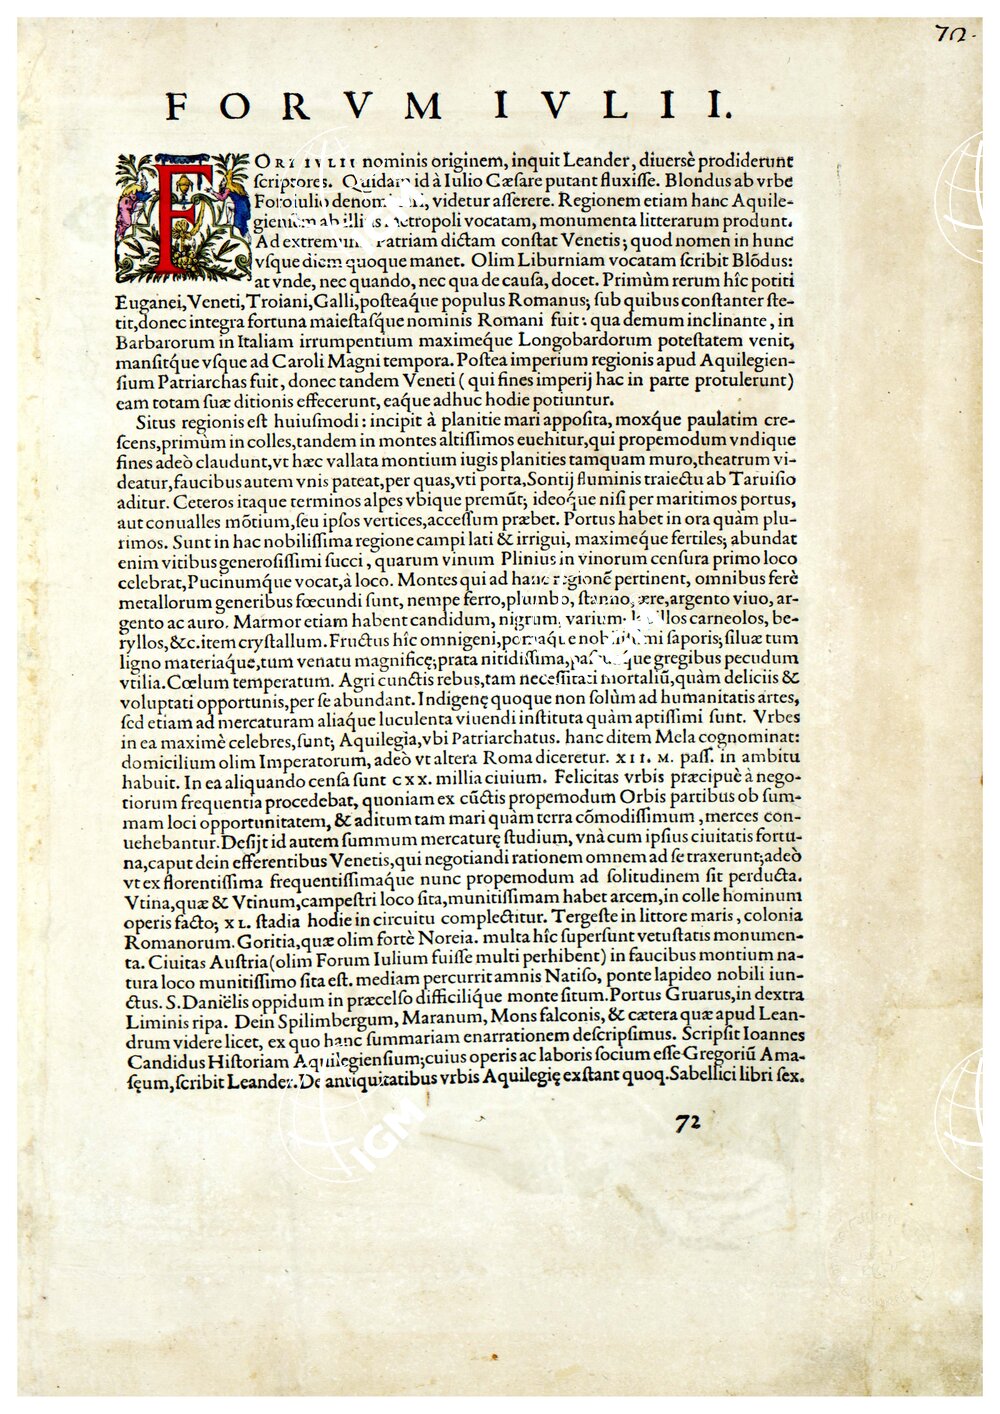 72.
FORVM IVLII.
FORI IVLII nominis originem, inquit Leander, diuersè prodiderunt
scriptores. Quidam id à Iulio Cæsare putant fluxisse. Blondus ab vrbe
Foroiulio videtur asserere. Regionem etiam hanc Aquile-
giensem ab illius metropoli vocatam, monumenta litterarum produnt.
Ad extremum Patriam dictam constat Venetis; quod nomen in hunc
vsque diem quoque manet. Olim Liburniam vocatam scribit Blōdus:
at vnde, nec quando, nec qua de causa, docet. Primùm rerum hîc potiti
Euganei, Veneti, Troiani, Galli, posteaque populus Romanus; sub quibus constanter ste-
tit, donec integra fortuna maiestasq́ue nominis Romani fuit: qua demum inclinante, in
Barbarorum in Italiam irrumpentium maximeque Longobardorum potestatem venit,
mansitq́ue vsque ad Caroli Magni tempora. Postea imperium regionis apud Aquilegien-
sium Patriarchas fuit, donec tandem Veneti ( qui fines imperij hac in parte protulerunt)
eam totam suæ ditionis effecerunt, eaque adhuc hodie potiuntur.
Situs regionis est huiusmodi: incipit à planitie mari apposita, moxq́ue paulatim cre-
scens, primùm in colles, tandem in montes altissimos euehitur, qui propemodum vndique
fines adeò claudunt, vt hæc vallata montium iugis planities tamquam muro, theatrum vi-
deatur, faucibus autem vnis pateat, per quas, vti porta, Sontij fluminis traiectu ab Taruisio
aditur. Ceteros itaque terminos alpes vbique premūt; ideoq́ue nisi per maritimos portus,
aut conualles mōtium, seu ipsos vertices, accessum præbet. Portus habet in ora quàm plu-
rimos. Sunt in hac nobilissima regione campi lati & irrigui, maximeque fertiles; abundat
enim vitibus generosissimi succi, quarum vinum Plinius in vinorum censura primo loco
celebrat, Pucinumq́ue vocat, à loco. Montes qui ad hanc regionē pertinent, omnibus ferè
metallorum generibus fœcundi sunt, nempe ferro, plumbo, stanno, ære, argento viuo, ar-
gento ac auro. Marmor etiam habent candidum, nigrum, varium: lapillos carneolos, be-
ryllos, &c. item crystallum. Fructus hîc omnigeni, pomaque nobilissimi saporis; siluæ tum
ligno materiaque, tum venatu magnificę; prata nitidissima, pascuaque gregibus pecudum
vtilia. Cœlum temperatum. Agri cunctis rebus, tam necessitati mortaliū, quàm deliciis &
voluptati opportunis, per se abundant. Indigenę quoque non solùm ad humanitatis artes,
sed etiam ad mercaturam aliaque luculenta viuendi instituta quàm aptissimi sunt. Vrbes
in ea maximè celebres, sunt; Aquilegia, vbi Patriarchatus. hanc ditem Mela cognominat:
domicilium olim Imperatorum, adeò vt altera Roma diceretur. XII. M. pass. in ambitu
habuit. In ea aliquando censa sunt CXX. millia ciuium. Felicitas vrbis præcipuè à nego-
tiorum frequentia procedebat, quoniam ex cūctis propemodum Orbis partibus ob sum-
mam loci opportunitatem, & aditum tam mari quàm terra cōmodissimum, merces con-
uehebantur. Desijt id autem summum mercaturę studium, vnà cum ipsius ciuitatis fortu-
na, caput dein efferentibus Venetis, qui negotiandi rationem omnem ad se traxerunt; adeò
vt ex florentissima frequentissimaq́ue nunc propemodum ad solitudinem sit perducta.
Vtina, quæ & Vtinum, campestri loco sita, munitissimam habet arcem, in colle hominum
operis facto; XL. stadia hodie in circuitu complectitur. Tergeste in littore maris, colonia
Romanorum. Goritia, quæ olim fortè Noreia. multa hîc supersunt vetustatis monumen-
ta. Ciuitas Austria (olim Forum Iulium fuisse multi perhibent) in faucibus montium na-
tura loco munitissimo sita est. mediam percurrit amnis Natiso, ponte lapideo nobili iun-
ctus. S. Daniëlis oppidum in præcelso difficiliq́ue monte situm. Portus Gruarus, in dextra
Liminis ripa. Dein Spilimbergum, Maranum, Mons falconis, & cætera quæ apud Lean-
drum videre licet, ex quo hanc summariam enarrationem descripsimus. Scripsit Ioannes
Candidus Historiam Aquilegiensium; cuius operis ac laboris socium esse Gregoriū Ama-
sęum, scribit Leander. De antiquitatibus vrbis Aquilegię exstant quoq. Sabellici libri sex.
72
IGN